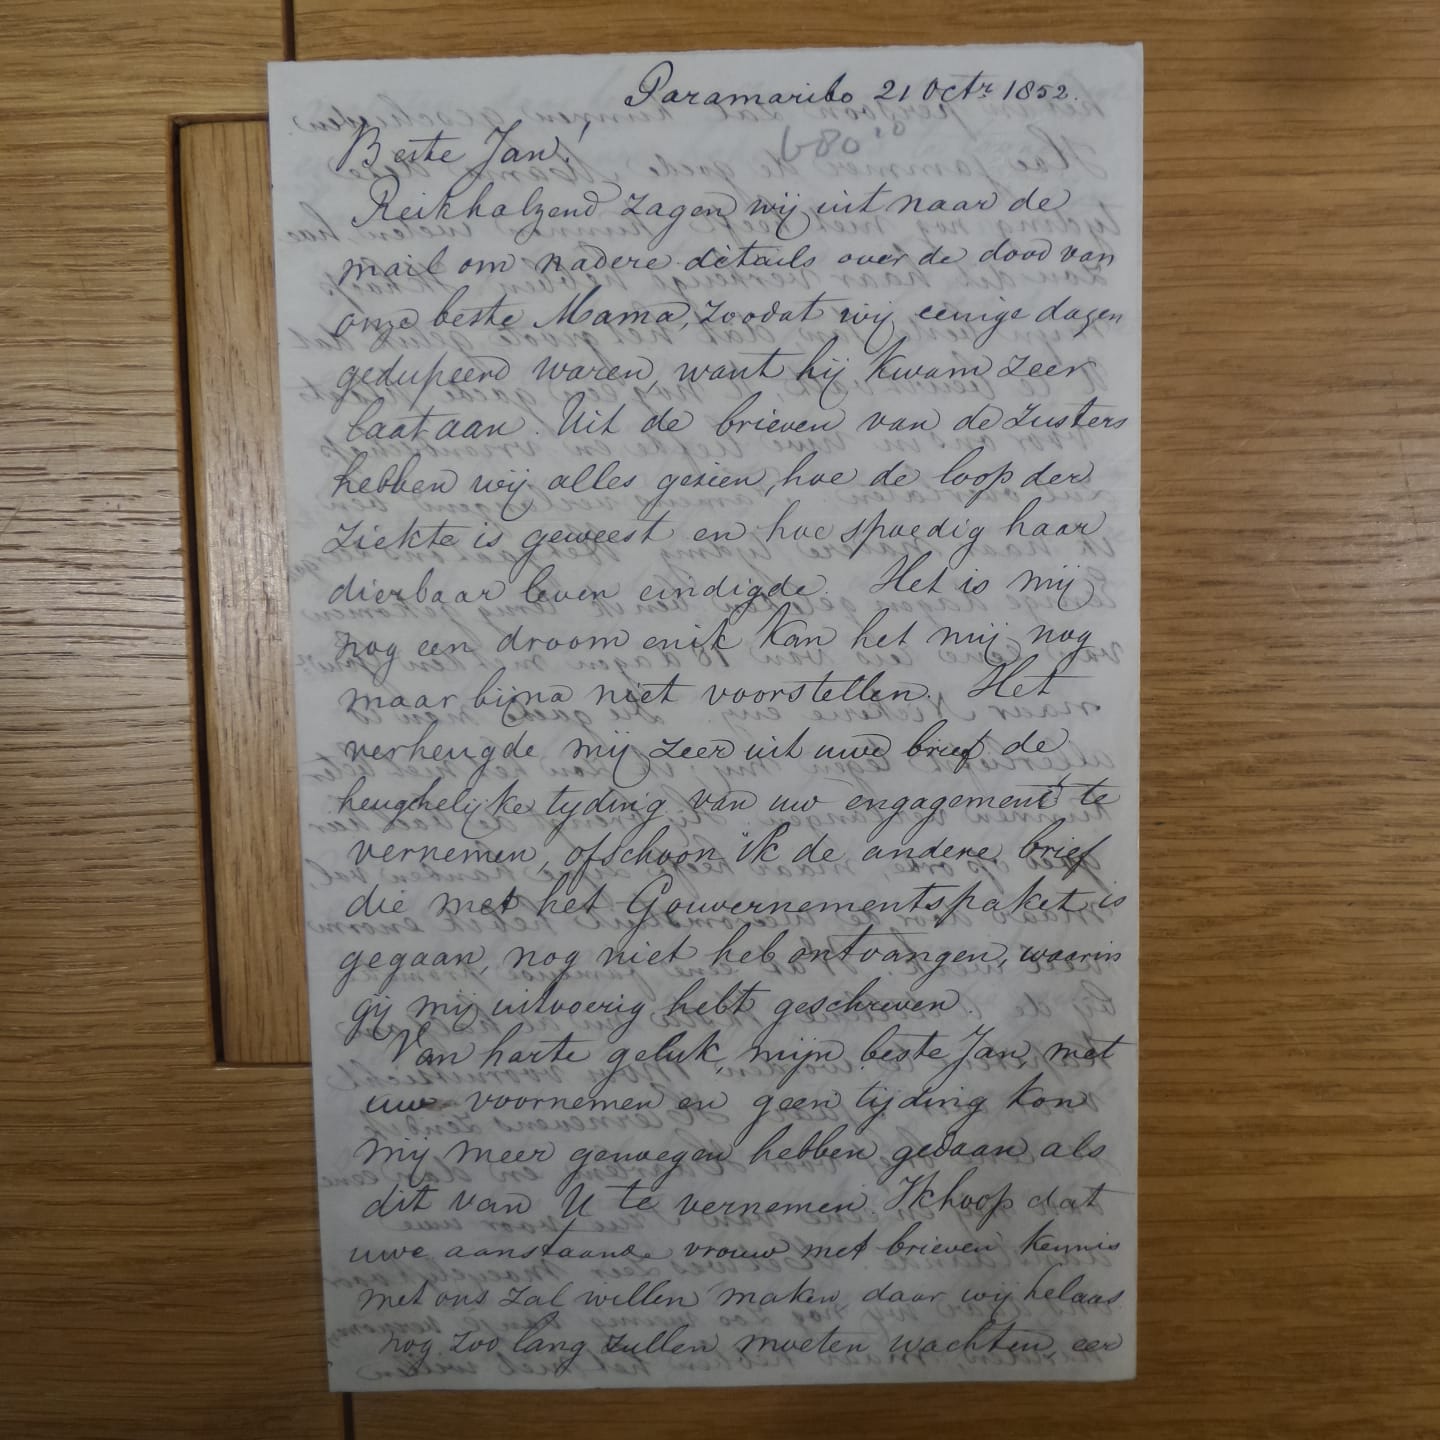 Paramaribo 21 Octr 1852.
680
Beste Jan!
Reikhalzend zagen wij uit naar de
mail om nadere détails over de dood van
onze beste Mama, zoodat wij eenige dagen
gedupeerd waren, want hij kwam zeer
laat aan. Uit de brieven van de zusters
hebben wij alles gezien, hoe de loop der
ziekte is geweest en hoe spoedig haar
dierbaar leven eindigde. Het is mij
nog een droom en ik kan het mij nog
maar bijna niet voorstellen. Het
verheugde mij zeer uit uwe brief de
heughelijke tijding van uw engagement te
vernemen, ofschoon ik de andere brief
die met het Gouvernementspaket is
gegaan, nog niet heb ontvangen, waarin
gij mij uitvoerig hebt geschreven.
Van harte geluk, mijn beste Jan, met
uw voornemen en geen tijding kon
mij meer genoegen hebben gedaan als
dit van U te vernemen. Ik hoop dat
uwe aanstaande vrouw met brieven kennis
met ons zal willen maken daar wij helaas
nog zoo lang zullen moeten wachten, eer